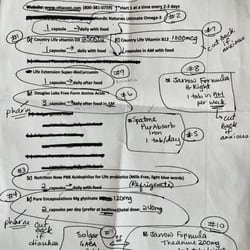 Website: www.vitacost.com (800-381-0759) *start 1 at a time every 2-3 days
#2
Nordic Naturals Ultimate Omega
1 capsule / daily with food
#1
Country Life vitamin D3
Country Life Vitamin B12 1000mcg
#7
cut back if anxious
1 capsule / daily with food
1 capsules in AM with food
#9
Life Extension Super-BioCurcumin
1 capsule / daily after food
#8
Jarrow Formula
B-Right
1 tab in AM
per week
Douglas Labs Free Form Amino Acids
#6
3 capsules / daily after food in AM
pharm
cut back if anxious
Spatone
Iron
1 tab/day
#5
#3
Nutrition Now PB8 Acidophilus for Life probiotics (Milk-Free, light blue words)
2 capsules / daily with food
(Refrigerate)
#4
Pure Encapsulations Mg glycinate 120mg
2 capsules per day (prefer at bedtime) total dose: 240mg
pharm
cut back if diarrhea
#10
Solgar
GABA
Jarrow Formula
Theanine 200mg